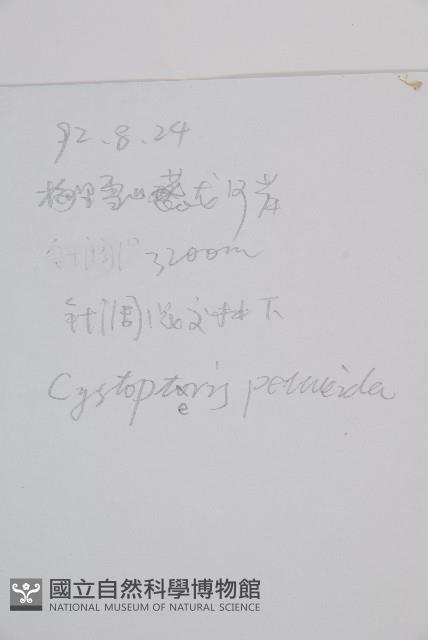 92.8.24
梅里雪山 龙河岸
针阔 3200m
针阔混交林下
Cystopteris pellucida
國立自然科學博物館
NATIONAL MUSEUM OF NATURAL SCIENCE